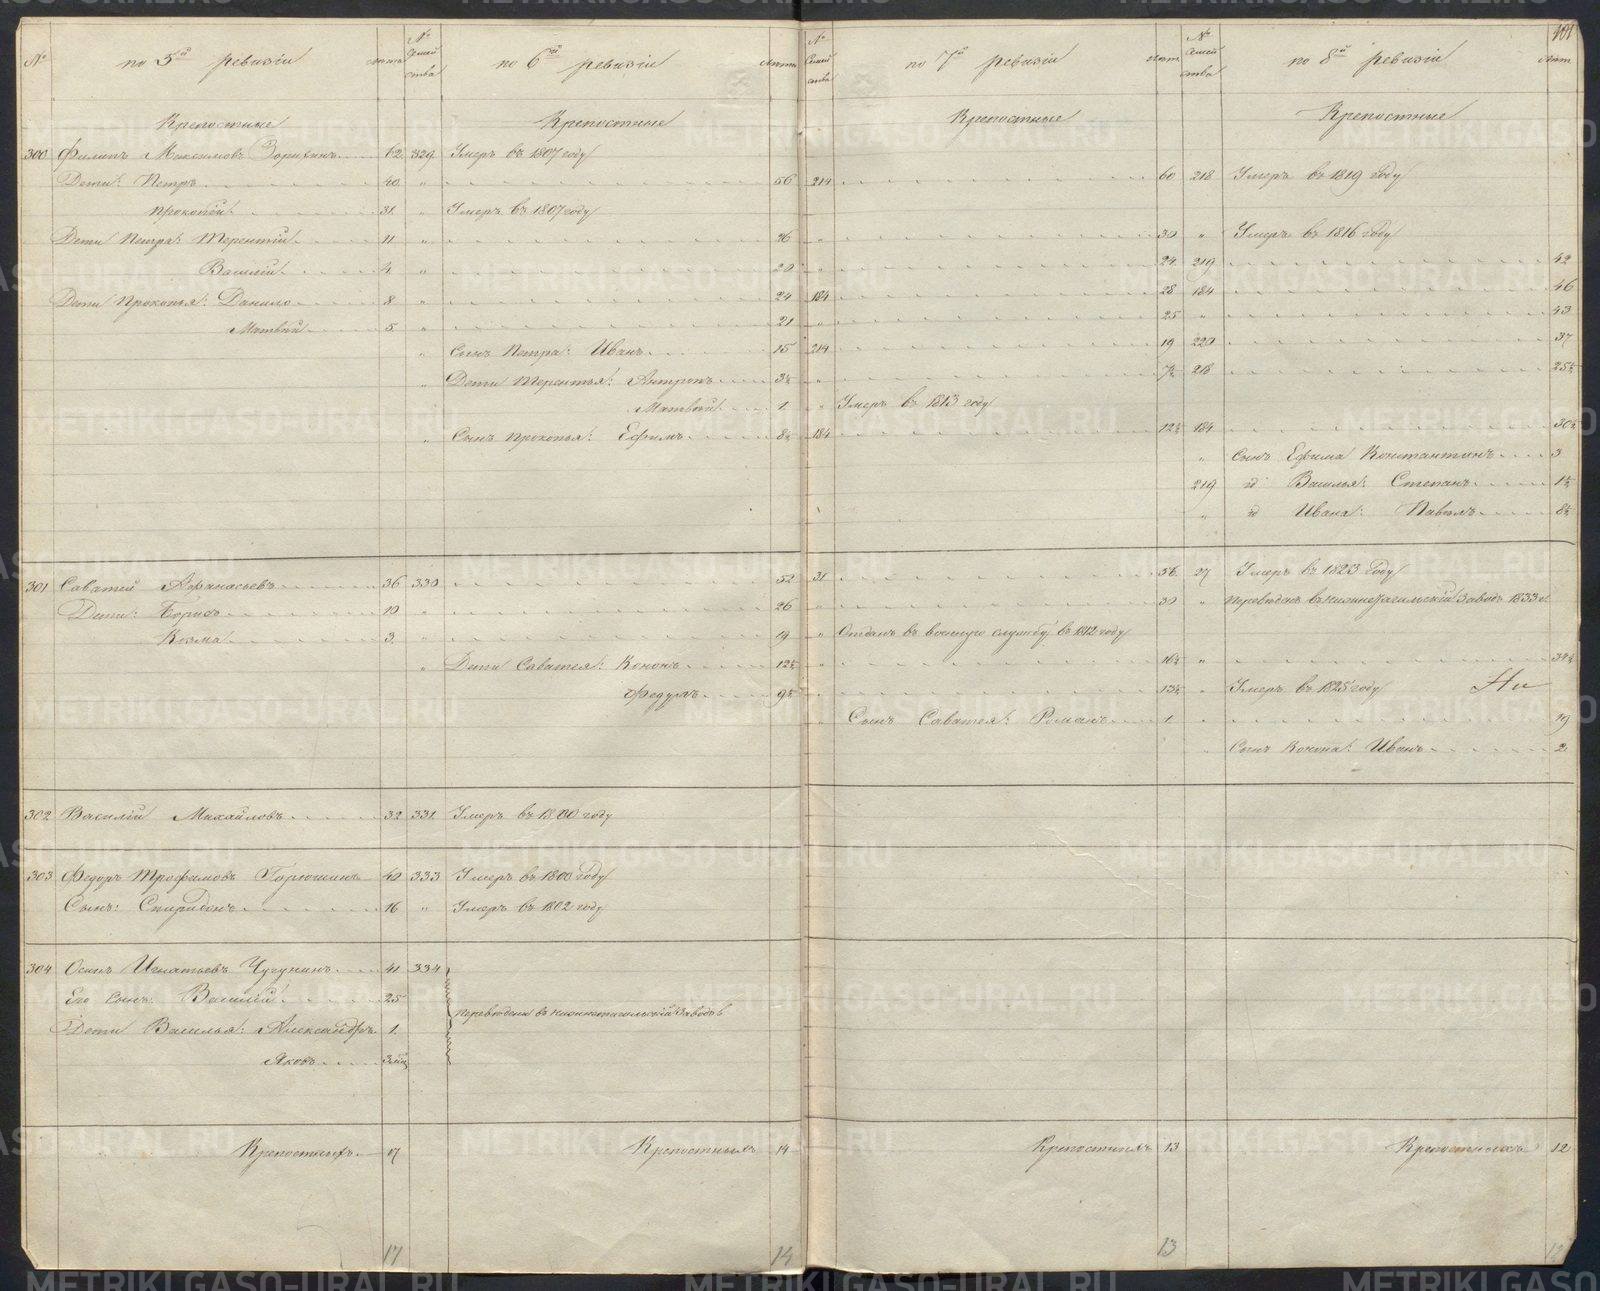 101
№ по 5й ревизіи лѣта № Семейства по 6й ревизіи лѣта № Семейства по 7й ревизіи лѣта № Семейства по 8й ревизіи лѣта
Крепостные Крепостные Крепостные Крепостные
300 Филипъ Максимовъ 62 329 Умеръ въ 1807 году
Дети: Петръ 40 " 56 214 60 218 Умеръ въ 1819 году
Прокопій 31 " Умеръ въ 1807 году
Дети Петра: Терентій 11 " 26 " 30 " Умеръ въ 1816 году
Василій 4 " 20 " 24 219 42
Дети Прокопья: Данило 8 " 24 184 28 184 46
Матвей 5 " 21 " 25 " 43
" Сынъ Петра: Иванъ 15 214 19 220 37
" Дети Терентья: Антропъ 3½ " 7½ 218 25½
Матвей 1 " Умеръ въ 1813 году
" Сынъ Прокопья: Ефимъ 8½ 184 12½ 184 30½
" Сынъ Ефима Константинъ 3
219 Василья: Степанъ 1½
" Ивана: Павелъ 8½
301 Саватей Афанасьевъ 36 330 52 31 56 27 Умеръ въ 1823 году
Дети: Борисъ 10 " 26 " 30 " Переведенъ в Нижнетагильскій заводъ 1833 г.
Козма 3 " 19 " Отданъ въ военную службу въ 1812 году
" Дети Саватея: Кононъ 12½ " 16½ " 34½
Федулъ 9½ " 13½ " Умеръ въ 1825 году
" Сынъ Саватея: Романъ 1 " 19
" Сынъ Конона: Иванъ 2
302 Василій Михайловъ 32 331 Умеръ въ 1800 году
303 Федоръ Трофимовъ Горюшинъ 40 333 Умеръ въ 1800 году
Сынъ: Спиридонъ 16 " Умеръ въ 1802 году
304 Осипъ Игнатьевъ Чугунинъ 41 334
Его сынъ: Василій 25
переведены въ Нижнетагильскій Заводъ
Дети Василья: Александръ 1
Яковъ 3 мѣс
Крепостныхъ 17 Крепостныхъ 14 Крепостныхъ 13 Крепостныхъ 12
17 14 13 12
METRIKI.GASO-URAL.RU